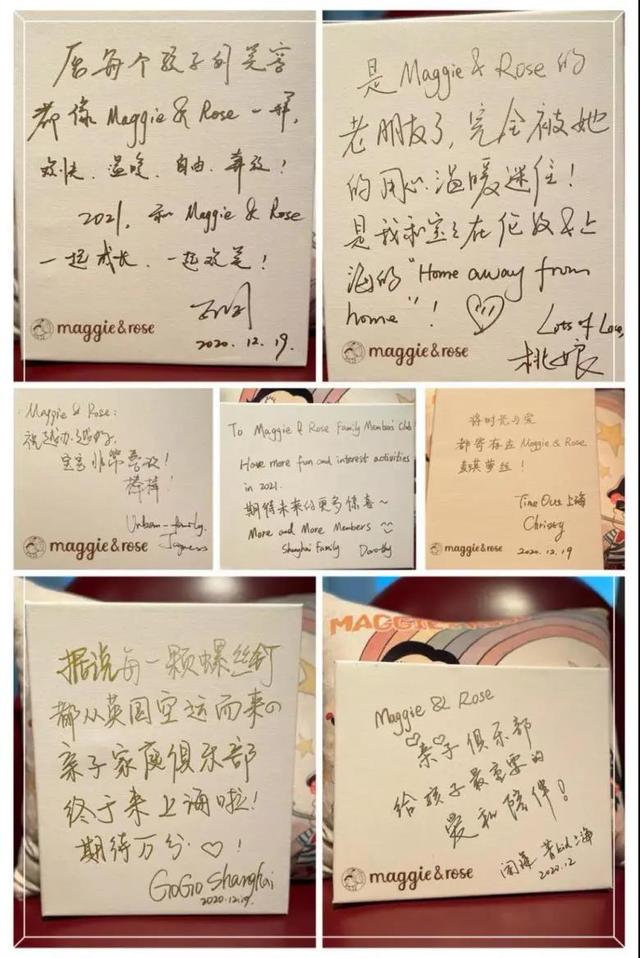 愿每个孩子的笑容
都像 Maggie & Rose 一样,
欢快、温暖、自由、奔放!
2021, 和 Maggie & Rose
一起成长、一起欢笑!
2020.12.19.
maggie&rose
是Maggie & Rose的
老朋友了,完全被她
的用心温暖迷住!
是我和宝宝在伦敦&上
海的"Home away from
home"!
Lots of Love,
桃娘
maggie&rose
Maggie & Rose:
祝越办越好,
宝宝非常喜欢!
棒棒!
Urban-family.
maggie&rose
To Maggie & Rose Family Members Club
Have more fun and interest activities
in 2021.
期待未来的更多惊喜~
More and More Members
Shanghai Family Dorothy
将时光与爱
都寄存在 Maggie & Rose
麦琪萝丝!
Time Out 上海
Christy
2020.12.19
maggie&rose
据说每一颗螺丝钉
都从英国空运而来的
亲子家庭俱乐部
终于来上海啦!
期待万分♡!
GoGo Shanghai
2020.12.19.
MAGGIE
Maggie & Rose
亲子俱乐部
给孩子最重要的
爱和陪伴!
上海
2020.12
maggie&rose